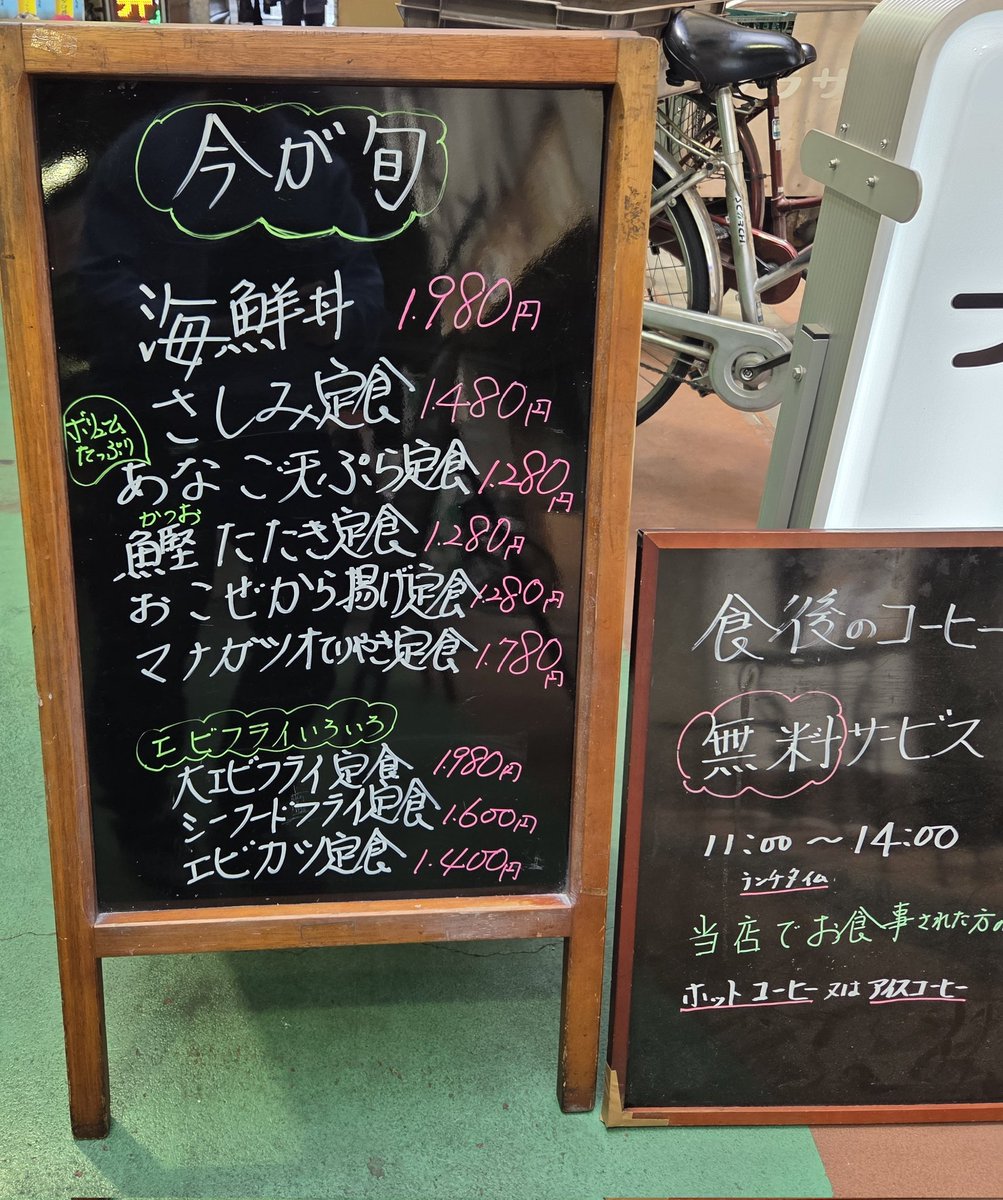 今が旬
海鮮丼 1.980円
さしみ定食 1480円
ボリュームたっぷり
あなご天ぷら定食 1.280円
かつお
鰹たたき定食 1.280円
おこぜから揚げ定食 1.280円
マナガツオてりやき定食 1.780円
エビフライいろいろ
大エビフライ定食 1.980円
シーフードフライ定食 1.600円
エビカツ定食 1.400円
食後のコーヒー
無料サービス
11:00〜14:00
ランチタイム
当店でお食事された方の
ホットコーヒー又はアイスコーヒー